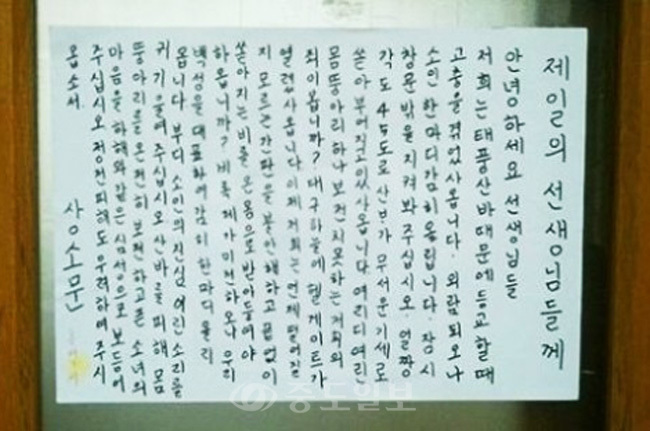 제일의 선생님들께
안녕하세요 선생님들
저희는 태풍산바때문에 등교할때
고충을 겪었사옵니다. 외람되오나
소인 한마디감히 올립니다. 잠시
창문 밖을 지켜봐 주십시오. 얼짱
각도 45도로 산보가 무서운기세로
쏟아부어지고있사옵니다. 여리디여린
몸뚱아리하나 보전치못하는 저희의
죄이옵니까? 대구하늘에 헬게이트가
열렸사옵니다 이제 저희는 언제떨어질
지 모르는간판을 불안해하고 끝없이
쏟아지는비를 온몸으로받아들여야
하옵니까? 비록 제가미천하오나 우리
백성을 대표하여감히한마디 올리
옵니다 부디 소인의진심 어린소리를
귀 기울여주십시오 산바를 피해 몸
뚱아리를온전히보전하고픈 소녀의
마음을 하해와같은 심성으로 보듬어
주십시오 정전피해도 우려하여 주시
옵소서
상소문
중도일보